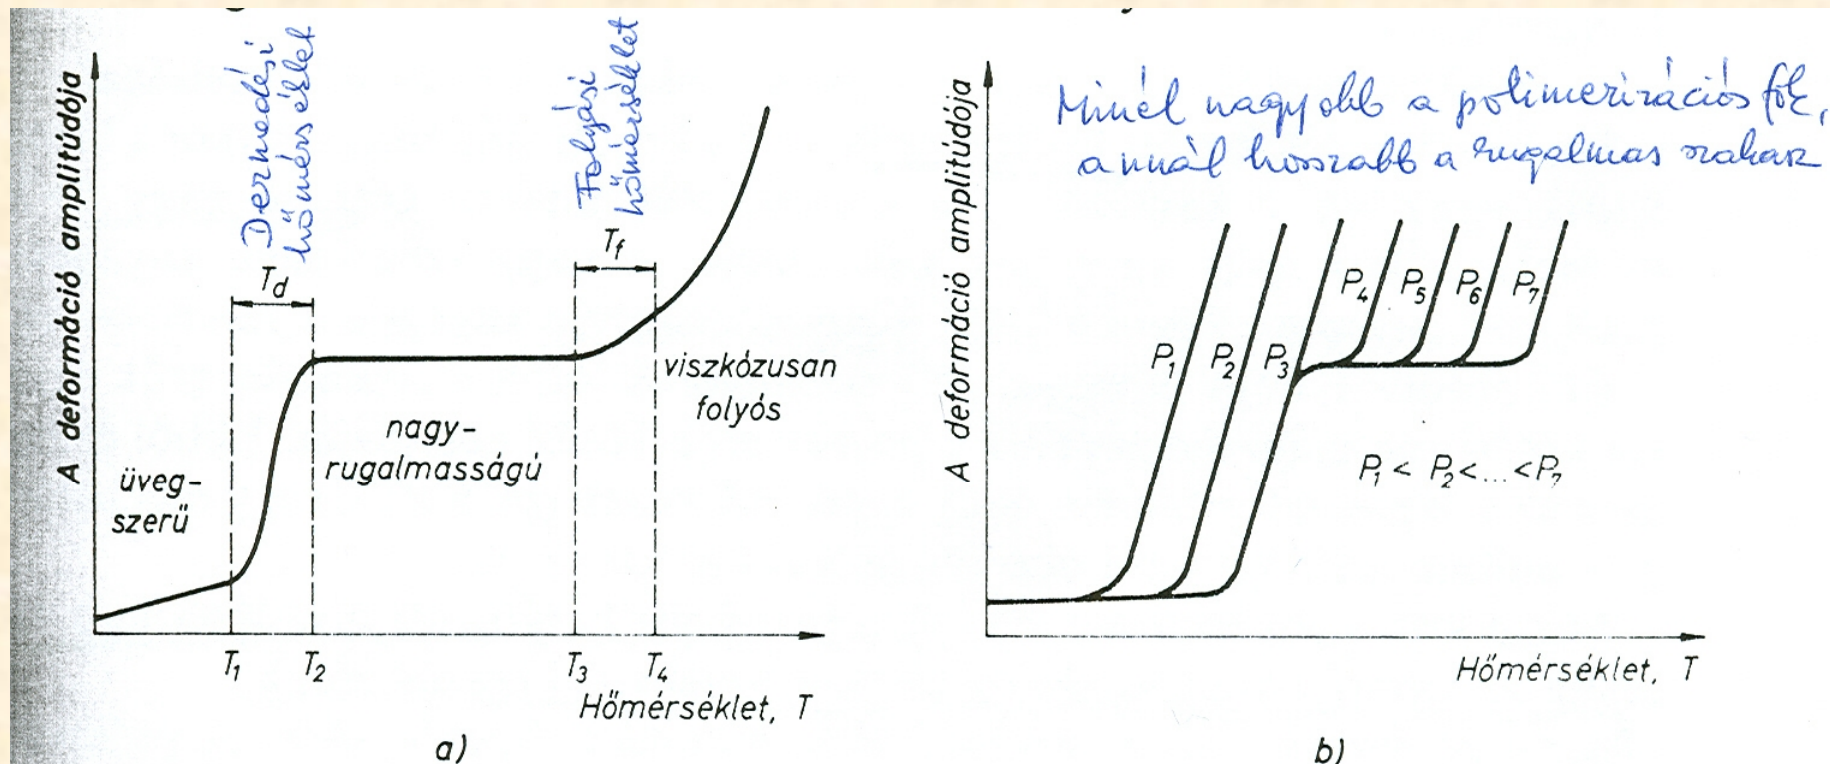 A deformáció amplitúdója
Dermedési
hőmérséklet
Folyási
hőmérséklet
T_d
T_f
üveg-
szerű
nagy-
rugalmasságú
viszkózusan
folyós
T_1 T_2 T_3 T_4
Hőmérséklet, T
a)
A deformáció amplitúdója
Minél nagyobb a polimerizációs fok,
annál hosszabb a rugalmas szakasz
P_4 P_5 P_6 P_7
P_1 P_2 P_3
P_1 < P_2 < ... < P_7
Hőmérséklet, T
b)